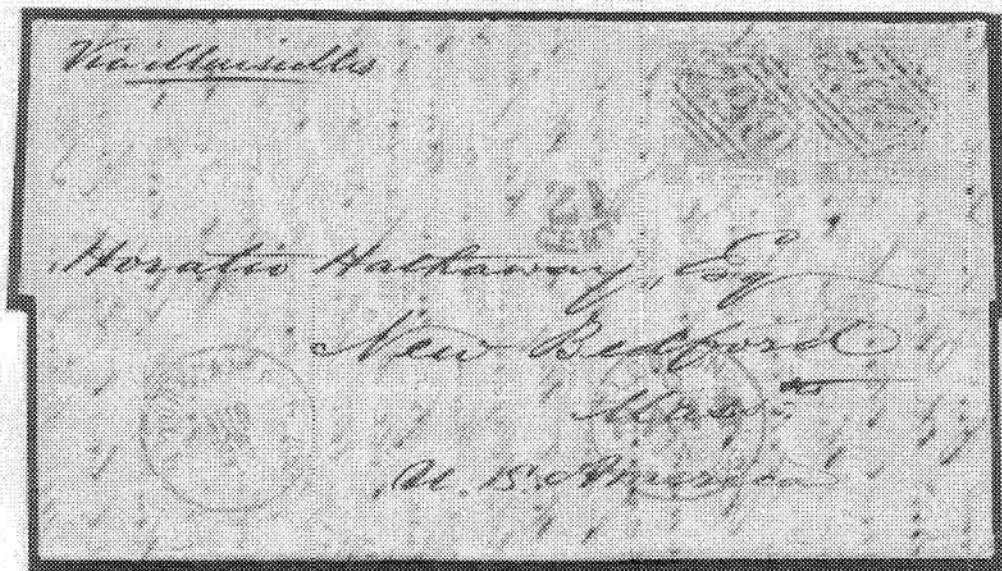 Via Marseilles
Horatio Hathaway, Esq
New Bedford
Mass
U. S. America